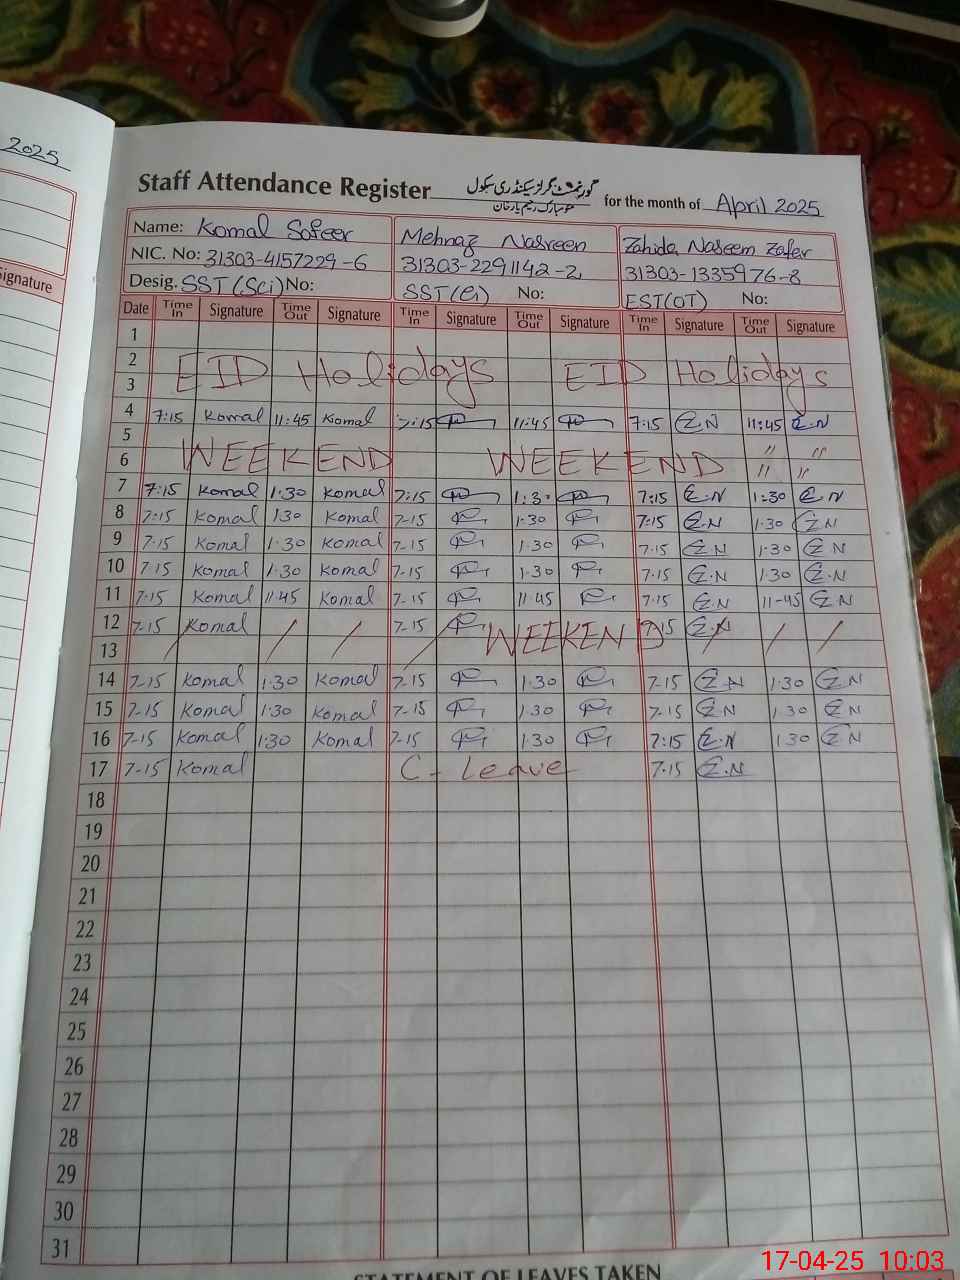 2025
Signature
Staff Attendance Register گورنمنٹ گرلز سیکنڈری سکول for the month of April 2025
رحیم یار خان
Name: Komal Safeer Mehnaz Nasreen Zahida Naseem Zafar
NIC. No: 31303-4157229-6 31303-2291142-2 31303-1335976-8
Desig. SST(Sci) No: SST( No: EST(OT) No:
Date Time In Signature Time Out Signature Time In Signature Time Out Signature Time In Signature Time Out Signature
1
2 EID Holidays EID Holidays
3
4 7:15 Komal 11:45 Komal 7:15 11:45 7:15 Z.N 11:45 Z.N
5 " "
6 WEEKEND WEEKEND " "
7 7:15 Komal 1:30 Komal 7:15 1:30 7:15 Z.N 1:30 Z.N
8 7-15 Komal 1:30 Komal 7-15 1.30 7:15 Z.N 1.30 Z N
9 7-15 Komal 1.30 Komal 7-15 1.30 7.15 Z N 1.30 Z N
10 7:15 Komal 1.30 Komal 7-15 1.30 7.15 Z.N 1.30 Z.N
11 7-15 Komal 11.45 Komal 7-15 11.45 7.15 Z.N 11-45 Z.N
12 7-15 Komal 7-15 WEEKEND 7:15 Z.N
13
14 7-15 Komal 1.30 Komal 7-15 1.30 7-15 Z N 1.30 Z N
15 7-15 Komal 1.30 Komal 7-15 1.30 7.15 Z N 1.30 Z N
16 7-15 Komal 1:30 Komal 7-15 1.30 7:15 Z.N 1.30 Z N
17 7-15 Komal C- Leave 7.15 Z.N
18
19
20
21
22
23
24
25
26
27
28
29
30
31
STATEMENT OF LEAVES TAKEN
17-04-25 10:03